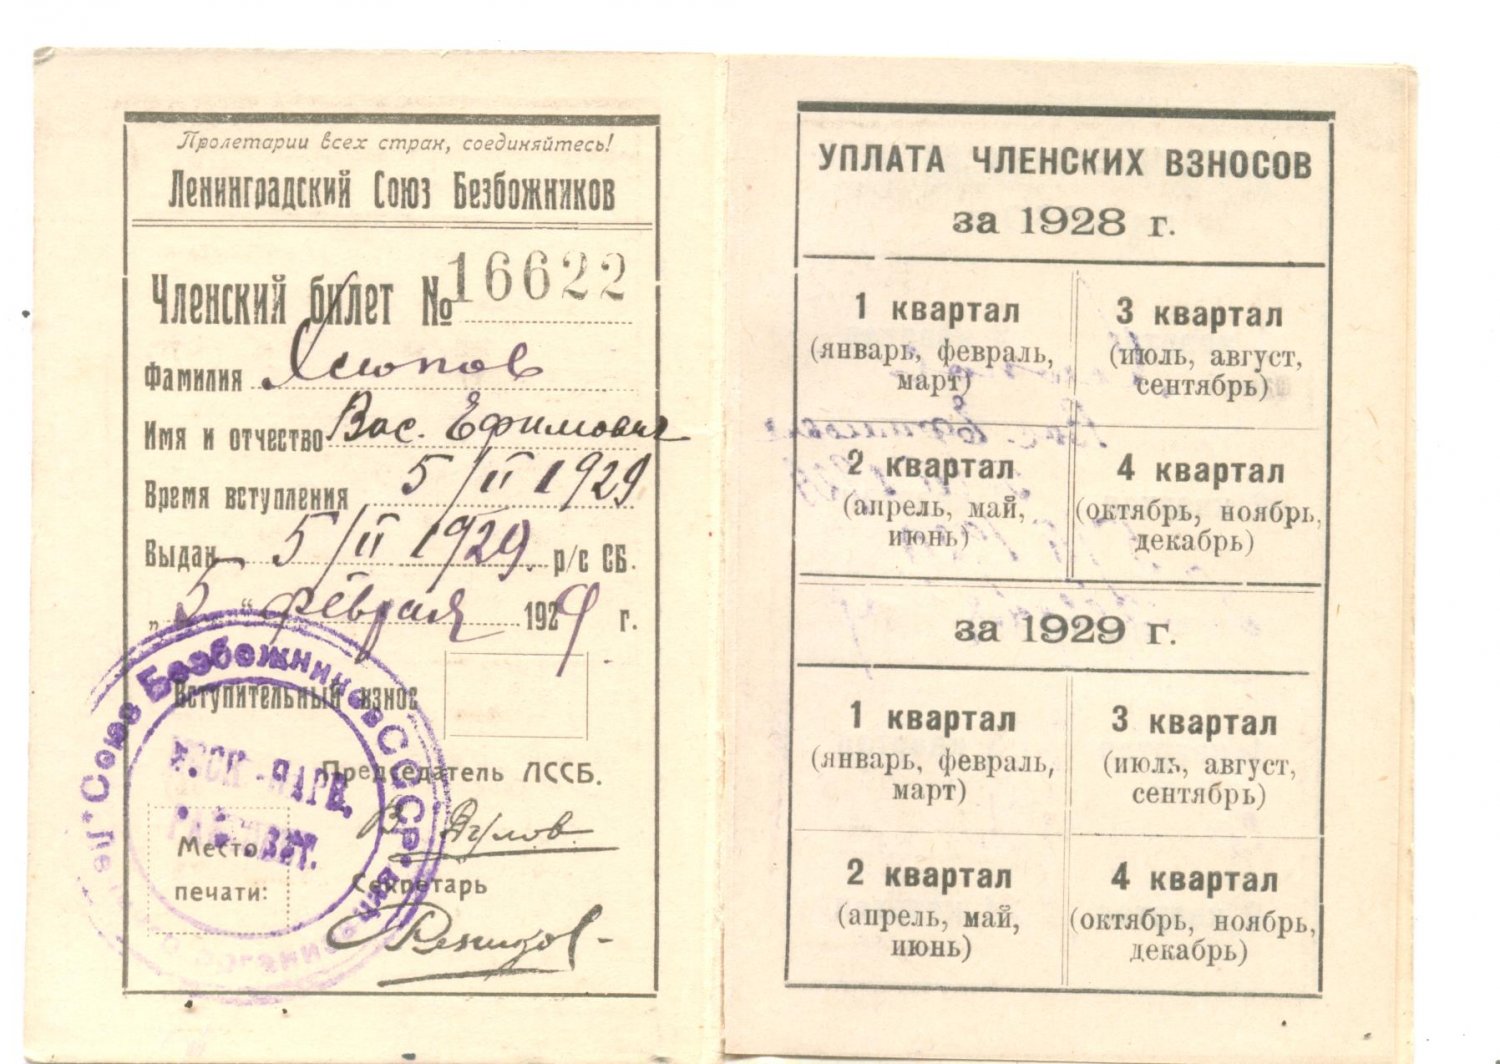 Пролетарии всех стран, соединяйтесь!
Ленинградский Союз Безбожников
Членский билет № 16622
Фамилия
Имя и отчество Вас. Ефимович
Время вступления 5/II 1929
Выдан 5/II 1929. р/с СБ.
„5“ февраля 1929 г.
Вступительный взнос
Председатель ЛССБ.
Место
печати:
Секретарь
Союз Безбожников СССР
УПЛАТА ЧЛЕНСКИХ ВЗНОСОВ
за 1928 г.
1 квартал
(январь, февраль,
март)
3 квартал
(июль, август,
сентябрь)
2 квартал
(апрель, май,
июнь)
4 квартал
(октябрь, ноябрь,
декабрь)
за 1929 г.
1 квартал
(январь, февраль,
март)
3 квартал
(июль, август,
сентябрь)
2 квартал
(апрель, май,
июнь)
4 квартал
(октябрь, ноябрь,
декабрь)